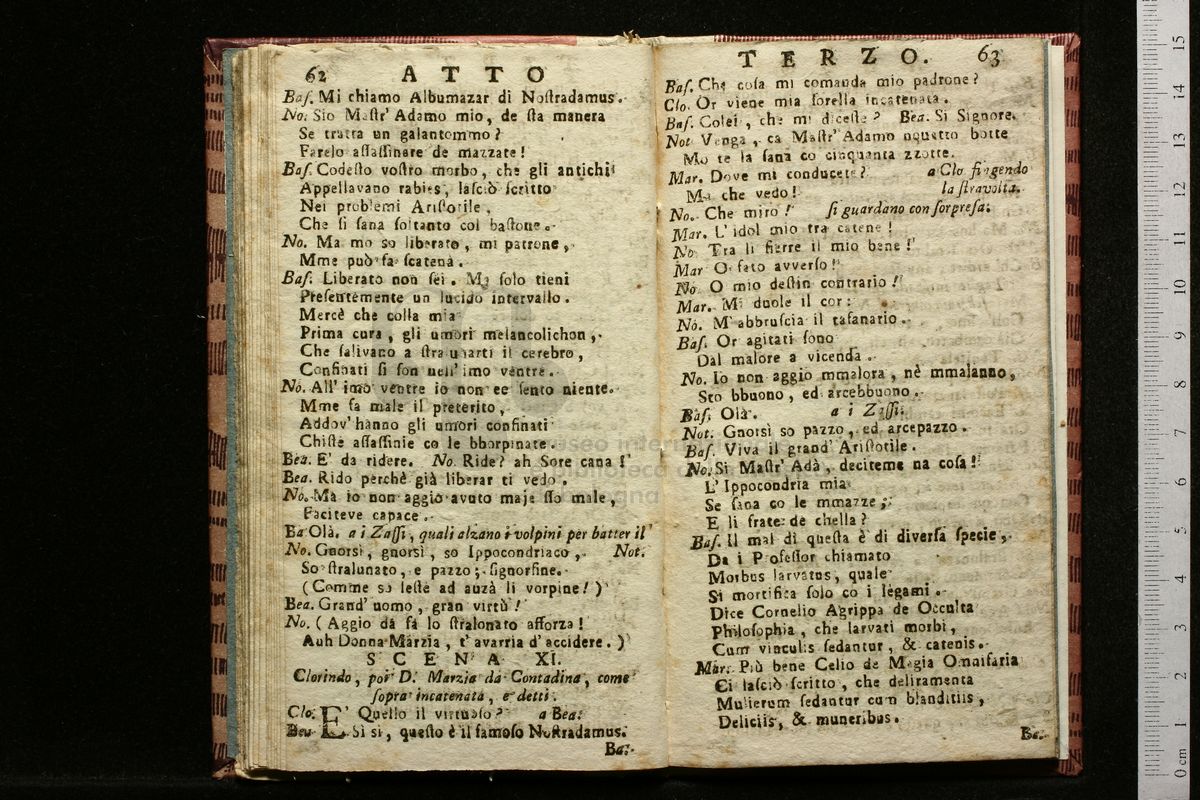 62 ATTO
Baſ. Mi chiamo Albumazar di Noſtradamus.
No. Sio Maſtr' Adamo mio, de ſta manera
Se tratta un galantommo?
Farelo aſſaſſinare de mazzate!
Baſ. Codeſto voſtro morbo, che gli antichi
Appellavano rabies, laſciò ſcritto
Nei problemi Ariſtotile,
Che ſi ſana ſoltanto col baſtone.
No. Ma mo so liberato, mi patrone,
Mme può fa ſcatenà.
Baſ. Liberato non ſei. Ma ſolo tieni
Preſentemente un lucido intervallo.
Mercè che colla mia
Prima cura, gli umori melancolichon,
Che ſalivano a ſtralunarti il cerebro,
Confinati ſi ſon nell' imo ventre.
No. All' imo ventre io non ce ſento niente.
Mme fa male il preterito,
Addov' hanno gli umori confinati
Chiſte aſſaſſinie co le bborpinate.
Bea. E' da ridere. No. Ride? ah Sore cana!
Bea. Rido perchè già liberar ti vedo.
No. Ma io non aggio avuto maje ſſo male,
Faciteve capace.
Ba Olà. a i Zaffi, quali alzano i volpini per batter il
No. Gnorsì, gnorsì, so Ippocondriaco, Not.
So ſtralunato, e pazzo; signorſine.
(Comme so leſte ad auzà li vorpine!)
Bea. Grand' uomo, gran virtù!
No. (Aggio da fa lo ſtralonato afforza!
Auh Donna Marzia, t' avarria d' accidere.)
SCENA XI.
Clorindo, poi D. Marzia da Contadina, come
ſopra incatenata, e detti.
Clo. E' Quello il virtuoſo? a Bea.
Bea Sì sì, queſto è il famoſo Noſtradamus.
Ba.
TERZO. 63
Baſ. Che coſa mi comanda mio padrone?
Clo. Or viene mia ſorella incatenata.
Baſ. Colei, che mi diceſte? Bea. Sì Signore.
Not Venga, ca Maſtr' Adamo nquatto botte
Mo te la ſana co cinquanta zzotte.
Mar. Dove mi conducete? a Clo fingendo
Ma che vedo! la ſtravolta.
No. Che miro! ſi guardano con ſorpreſa.
Mar. L' idol mio tra catene!
No Tra li fierre il mio bene!
Mar O fato avverſo!
No O mio deſtin contrario!
Mar. Mi duole il cor:
No. M' abbruſcia il tafanario.
Baſ. Or agitati ſono
Dal malore a vicenda.
No. Io non aggio mmalora, nè mmalanno,
Sto bbuono, ed arcebbuono.
Baſ. Olà. a i Zaffi.
Not. Gnorsì so pazzo, ed arcepazzo.
Baſ. Viva il grand' Ariſtotile.
No. Si Maſtr' Adà, decíteme na coſa!
L' Ippocondria mia
Se ſana co le mmazze;
E li frate de chella?
Baſ. Il mal di queſta è di diverſa ſpecie,
Da i Profeſſor chiamato
Morbus larvatus, quale
Si mortifica ſolo co i legami.
Dice Cornelio Agrippa de Occulta
Philoſophia, che larvati morbi,
Cum vinculis ſedantur, & catenis.
Mar. Più bene Celio de Magia Omnifaria
Ci laſciò ſcritto, che deliramenta
Mulierum ſedantur cum blanditiis,
Deliciis, & muneribus.
Ba.
15
14
13
12
11
10
9
8
7
6
5
4
3
2
1
0 cm